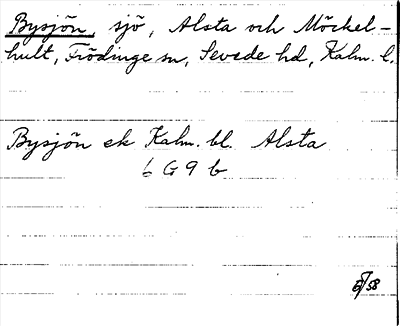 Bysjön, sjö, Alsta och Möckel-
hult, Frödinge sn, Sevede hd, Kalm. l.
Bysjön ek Kalm. bl. Alsta
6 G 9 b
58